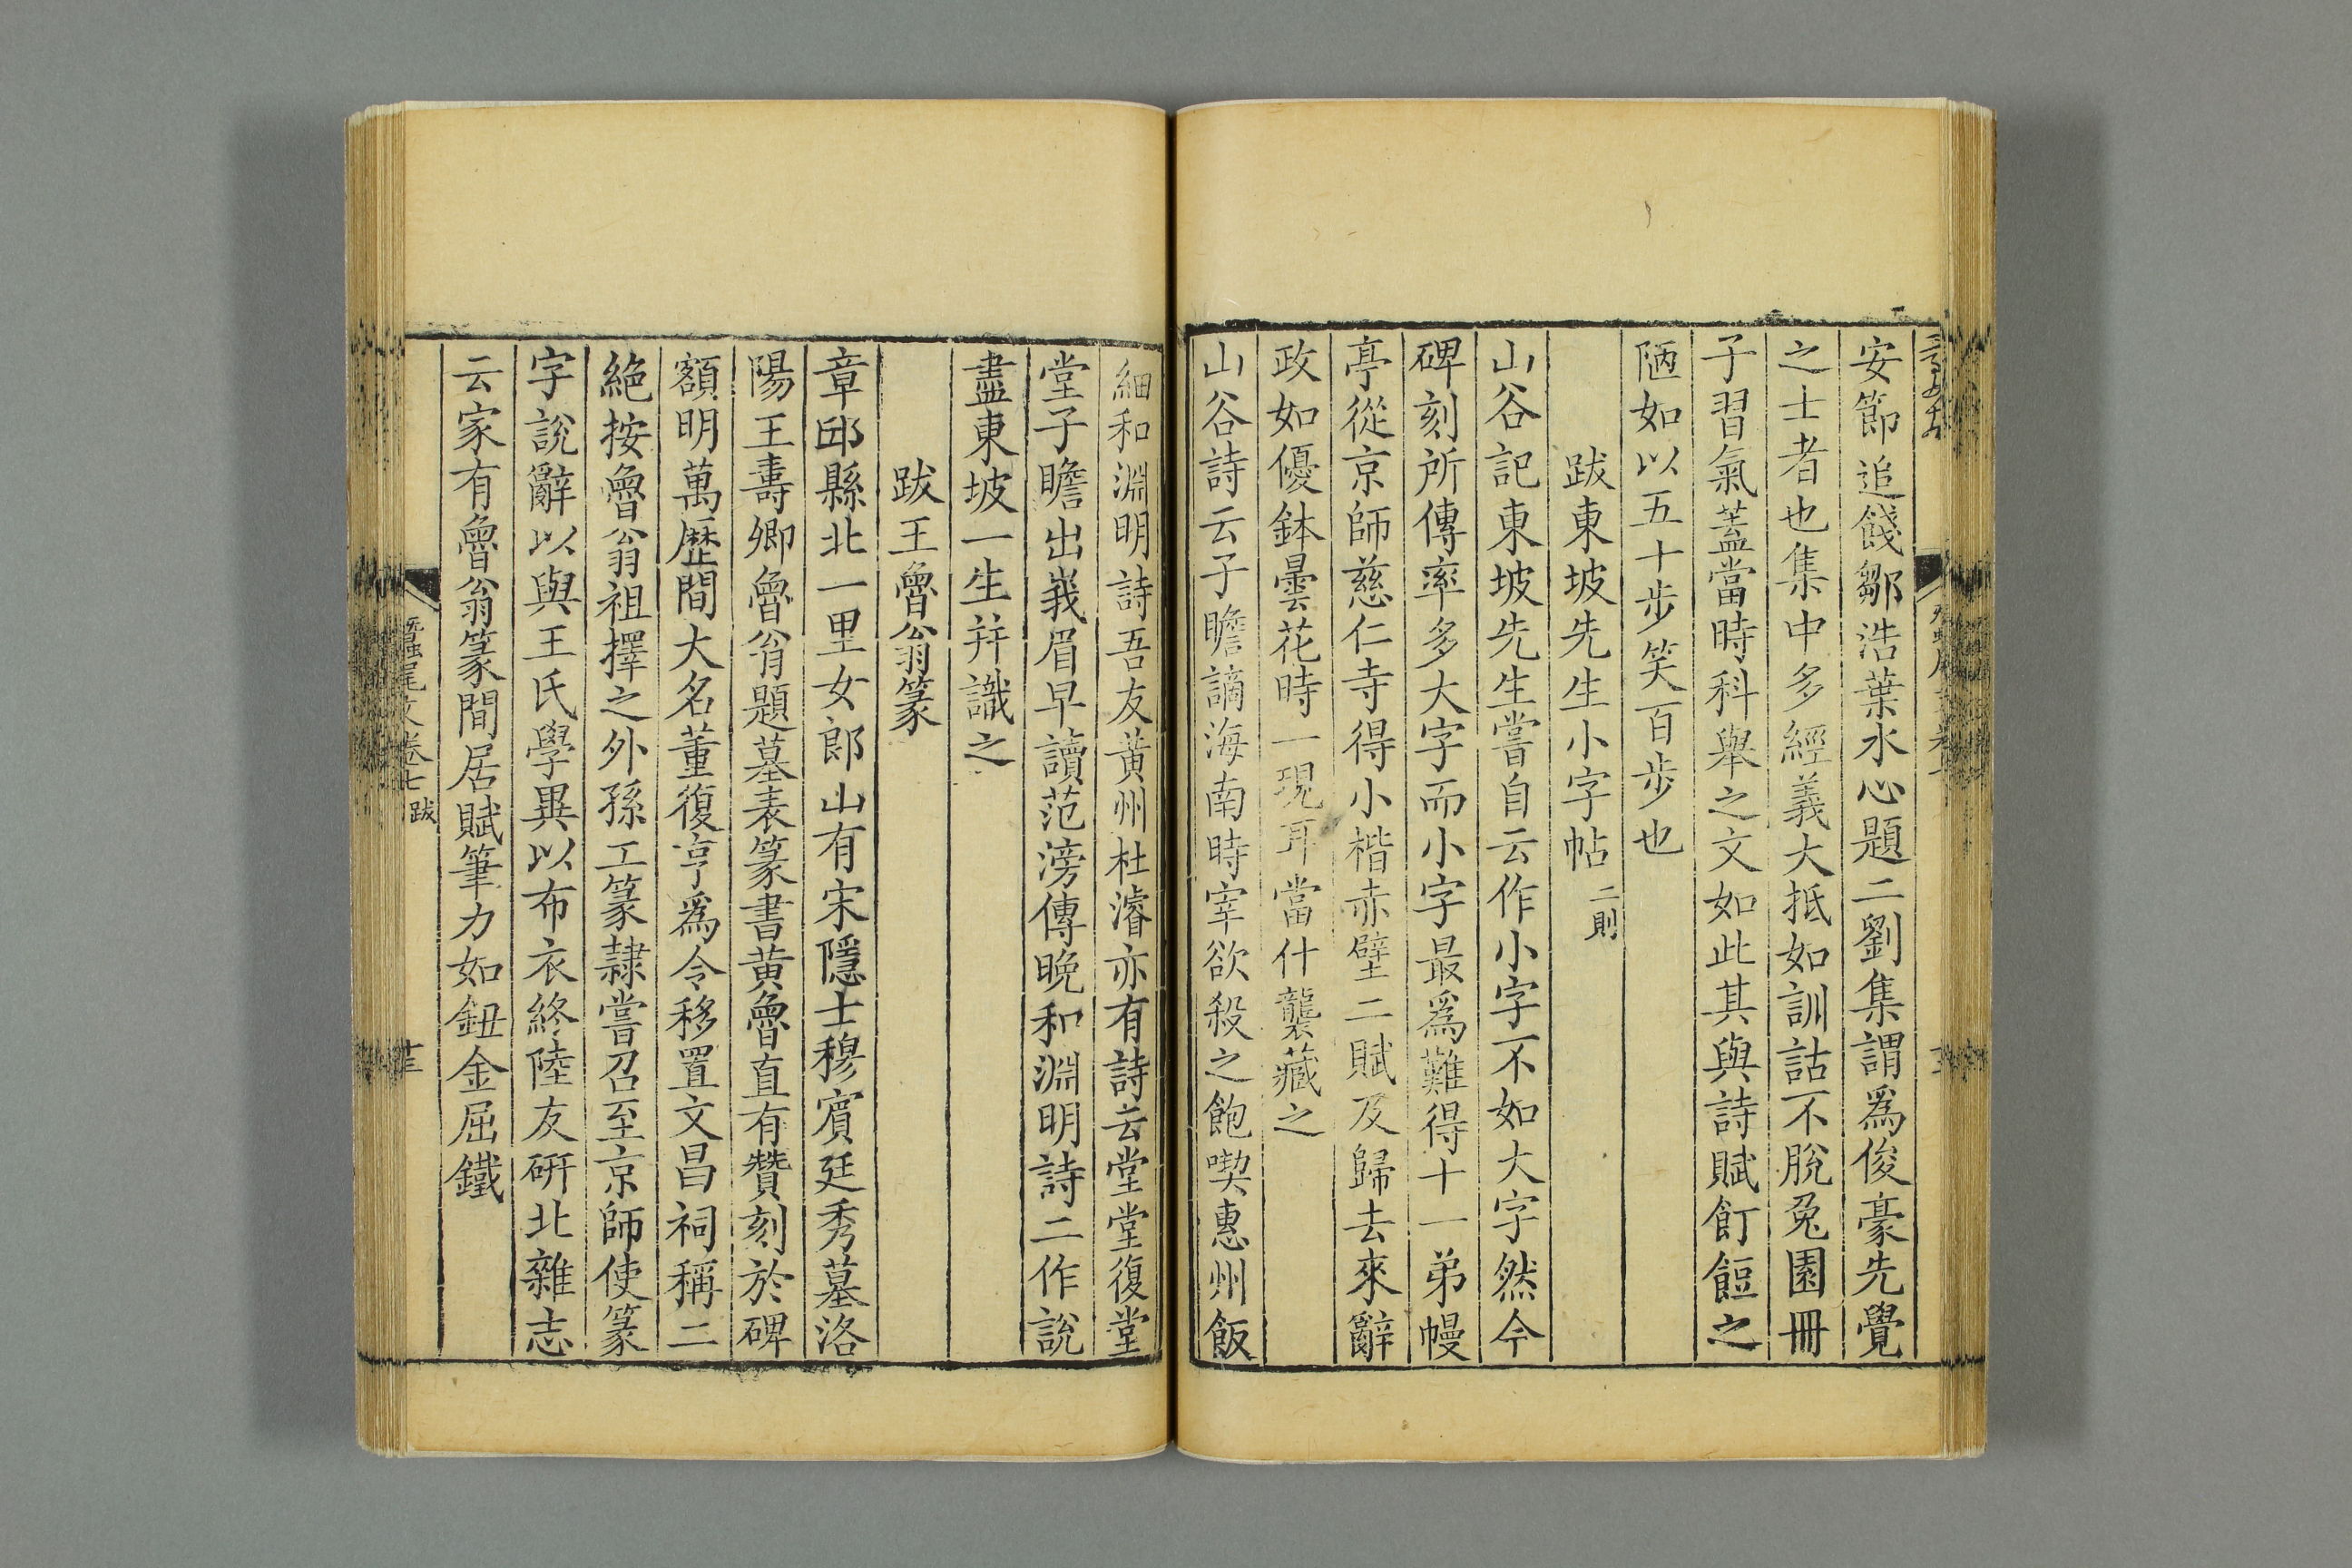 安節追餞鄒浩葉水心題二劉集謂爲俊豪先覺
之士者也集中多經義大抵如訓詁不脫兔園冊
子習氣蓋當時科舉之文如此其與詩賦飣餖之
陋如以五十步笑百步也
跋東坡先生小字帖 二則
山谷記東坡先生嘗自云作小字不如大字然今
碑刻所傳率多大字而小字最爲難得十一弟幔
亭從京師慈仁寺得小楷赤壁二賦及歸去來辭
政如優鉢曇花時一現耳當什襲藏之
山谷詩云子瞻謫海南時宰欲殺之飽喫惠州飯
細和淵明詩吾友黄州杜濬亦有詩云堂堂復堂
堂子瞻出峩眉早讀范滂傳晚和淵明詩二作說
盡東坡一生幷識之
跋王魯翁篆
章邱縣北一里女郎山有宋隱士穆賔廷秀墓洛
陽王壽卿魯翁題墓表篆書黄魯直有贊刻於碑
額明萬歴間大名董復亨爲令移置文昌祠稱二
絶按魯翁祖擇之外孫工篆隷嘗召至京師使篆
字說辭以與王氏學異以布衣終陸友硏北雜志
云家有魯翁篆間居賦筆力如鈕金屈鐵
蠶尾文卷七 跋 十三